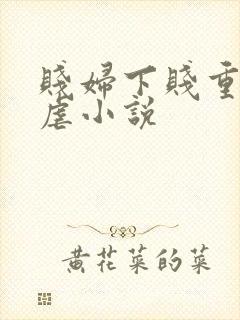 賤婦下賤重
虐小說
黄花菜的菜